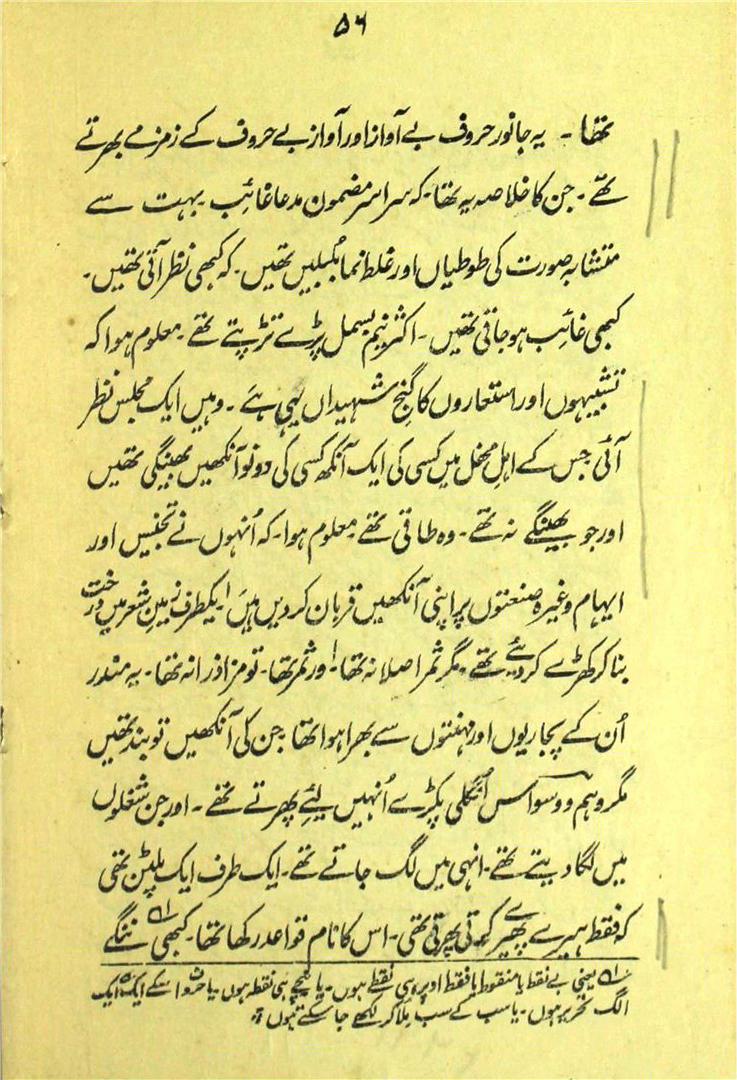 ۵۶
تھا ۔ یہ جانور حروف بے آواز اور آواز بے حروف کے زمزمے بھرتے
تھے ۔ جن کا خلاصہ یہ تھا ۔ کہ سراسر مضمون مدعا غائب بہت سے
متشابہ صورت کی طوطیاں اور غلط نما بُلبلیں تھیں ۔ کہ کبھی نظر آتی تھیں ۔
کبھی غائب ہو جاتی تھیں ۔ اکثر نیم بسمل پڑے تڑپتے تھے ۔ معلوم ہوا کہ
تشبیہوں اور استعاروں کا گنجِ شہیداں یہی ہے ۔ وہیں ایک مجلس نظر
آئی جس کے اہلِ محفل میں کسی کی ایک آنکھ کسی کی دونو آنکھیں بھینگی تھیں
اور جو بھینگے نہ تھے ۔ وہ طاقی تھے ۔ معلوم ہوا ۔ کہ اُنہوں نے تجنیس اور
ایہام وغیرہ صنعتوں پر اپنی آنکھیں قربان کر دیں ہیں ۔ ایکطرف زمینِ شعر میں درخت
بنا کر کھڑے کر دیئے تھے ۔ مگر ثمر اصلا نہ تھا ۔ اور ثمر تھا ۔ تو مزا ذرا نہ تھا ۔ یہ مندر
اُن کے پجاریوں اور مہنتوں سے بھرا ہوا تھا ۔ جن کی آنکھیں تو بند تھیں
مگر وہم و وسواس اُنگلی پکڑے اُنہیں لئے پھرتے تھے ۔ اور جن شغلوں
میں لگا دیتے تھے ۔ انہی میں لگ جاتے تھے ۔ ایک طرف ایک پلپٹن تھی
کہ فقط ہیرے پھیرے کرتی پھرتی تھی ۔ اس کا نام قواعد رکھا تھا ۔ کبھی ؎۱ ننگے
؎۱ یعنی بے نقط یا منقوط یا فقط اوپر ہی نقطے ہوں ۔ یا نیچے ہی نقطہ ہوں ۔ یا حروف اسکے ایک ایک
الگ تحریر ہوں ۔ یا سب کے سب ملا کر لکھے جا سکتے ہوں ؞